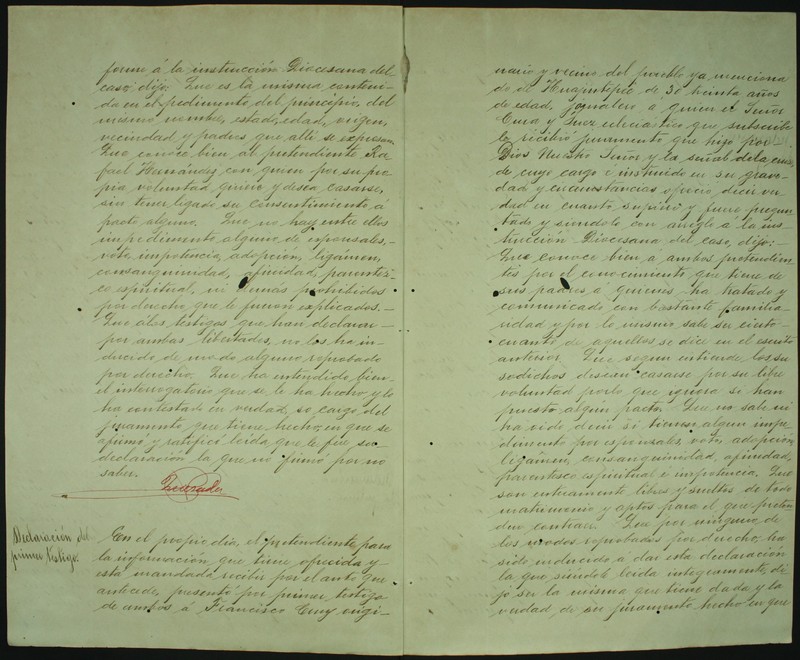 forme á la instrucción Diocesana del
caso, dijo: Que es la misma conteni-
da en el pedimento del principio, del
mismo nombre, estado, edad, origen,
vecindad y padres que alli se expresan.
Que conoce bien al pretendiente Ra-
fael Hernández con quien por su pro-
pia voluntad quiere y desea casarse,
sin tener ligado su consentimiento a
pacto alguno. Que no hay entre ellos
impedimento alguno de esponsales,
voto, impotencia, adopción, ligámen,
consanguinidad, afinidad, parentes-
co espiritual, ni demás prohibidos
por derecho que le fueron esplicados.
Que á los testigos que han declarar
por ambas libertades, no los ha in-
ducido de modo alguno reprobado
por derecho. Que ha entendido bien
el interrogatorio que se le ha hecho y lo
ha contestado en verdad, so cargo del
juramento que tiene hecho, en que se
afirmó y ratificó leida que le fue su
declaración la que no firmó por no
saber.
Quezada
Declaración del
primer testigo.
En el propio dia, el pretendiente para
la información que tiene ofrecida y
está mandada recibir por el auto que
antecede, presentó por primer testigo
de ambos á Francisco Cruz origi-
nario y vecino del pueblo ya menciona
do de Huajintepec de 30 treinta años
de edad, jornalero á quien el Señor
Cura y Juez eclesiástico que subscribe
le recibió juramento que hizo por
Dios Nuestro Señor y la señal de la cruz,
de cuyo cargo é instruido en su grave-
dad y circunstancias ofreció decir ver
dad en cuanto supiere y fuere pregun
tado y siendolo con arreglo á la ins-
trucción Diocesana del caso, dijo:
Que conoce bien a ambos pretendien
tes por el conocimiento que tiene de
sus padres á quienes ha tratado y
comunicado con bastante familia-
ridad y por lo mismo sabe ser cierto
cuanto de aquellos se dice en el escrito
anterior. Que segun entiende los su
sodichos desean casarse por su libre
voluntad por lo que ignora si han
puesto algun pacto. Que no sabe ni
ha oido decir si tienen algun impe
dimento por esponsales, voto, adopción,
ligámen, consanguinidad, afinidad,
parentesco espiritual e impotencia. Que
son enteramente libres y sueltos de todo
matrimonio y aptos para el que preten
den contraer. Que por ninguno de
los modos reprobados por derecho, ha
sido inducido á dar esta declaración
la que siendole leida integramente, di-
jo ser la misma que tiene dada y la
verdad de su juramento hecho en que